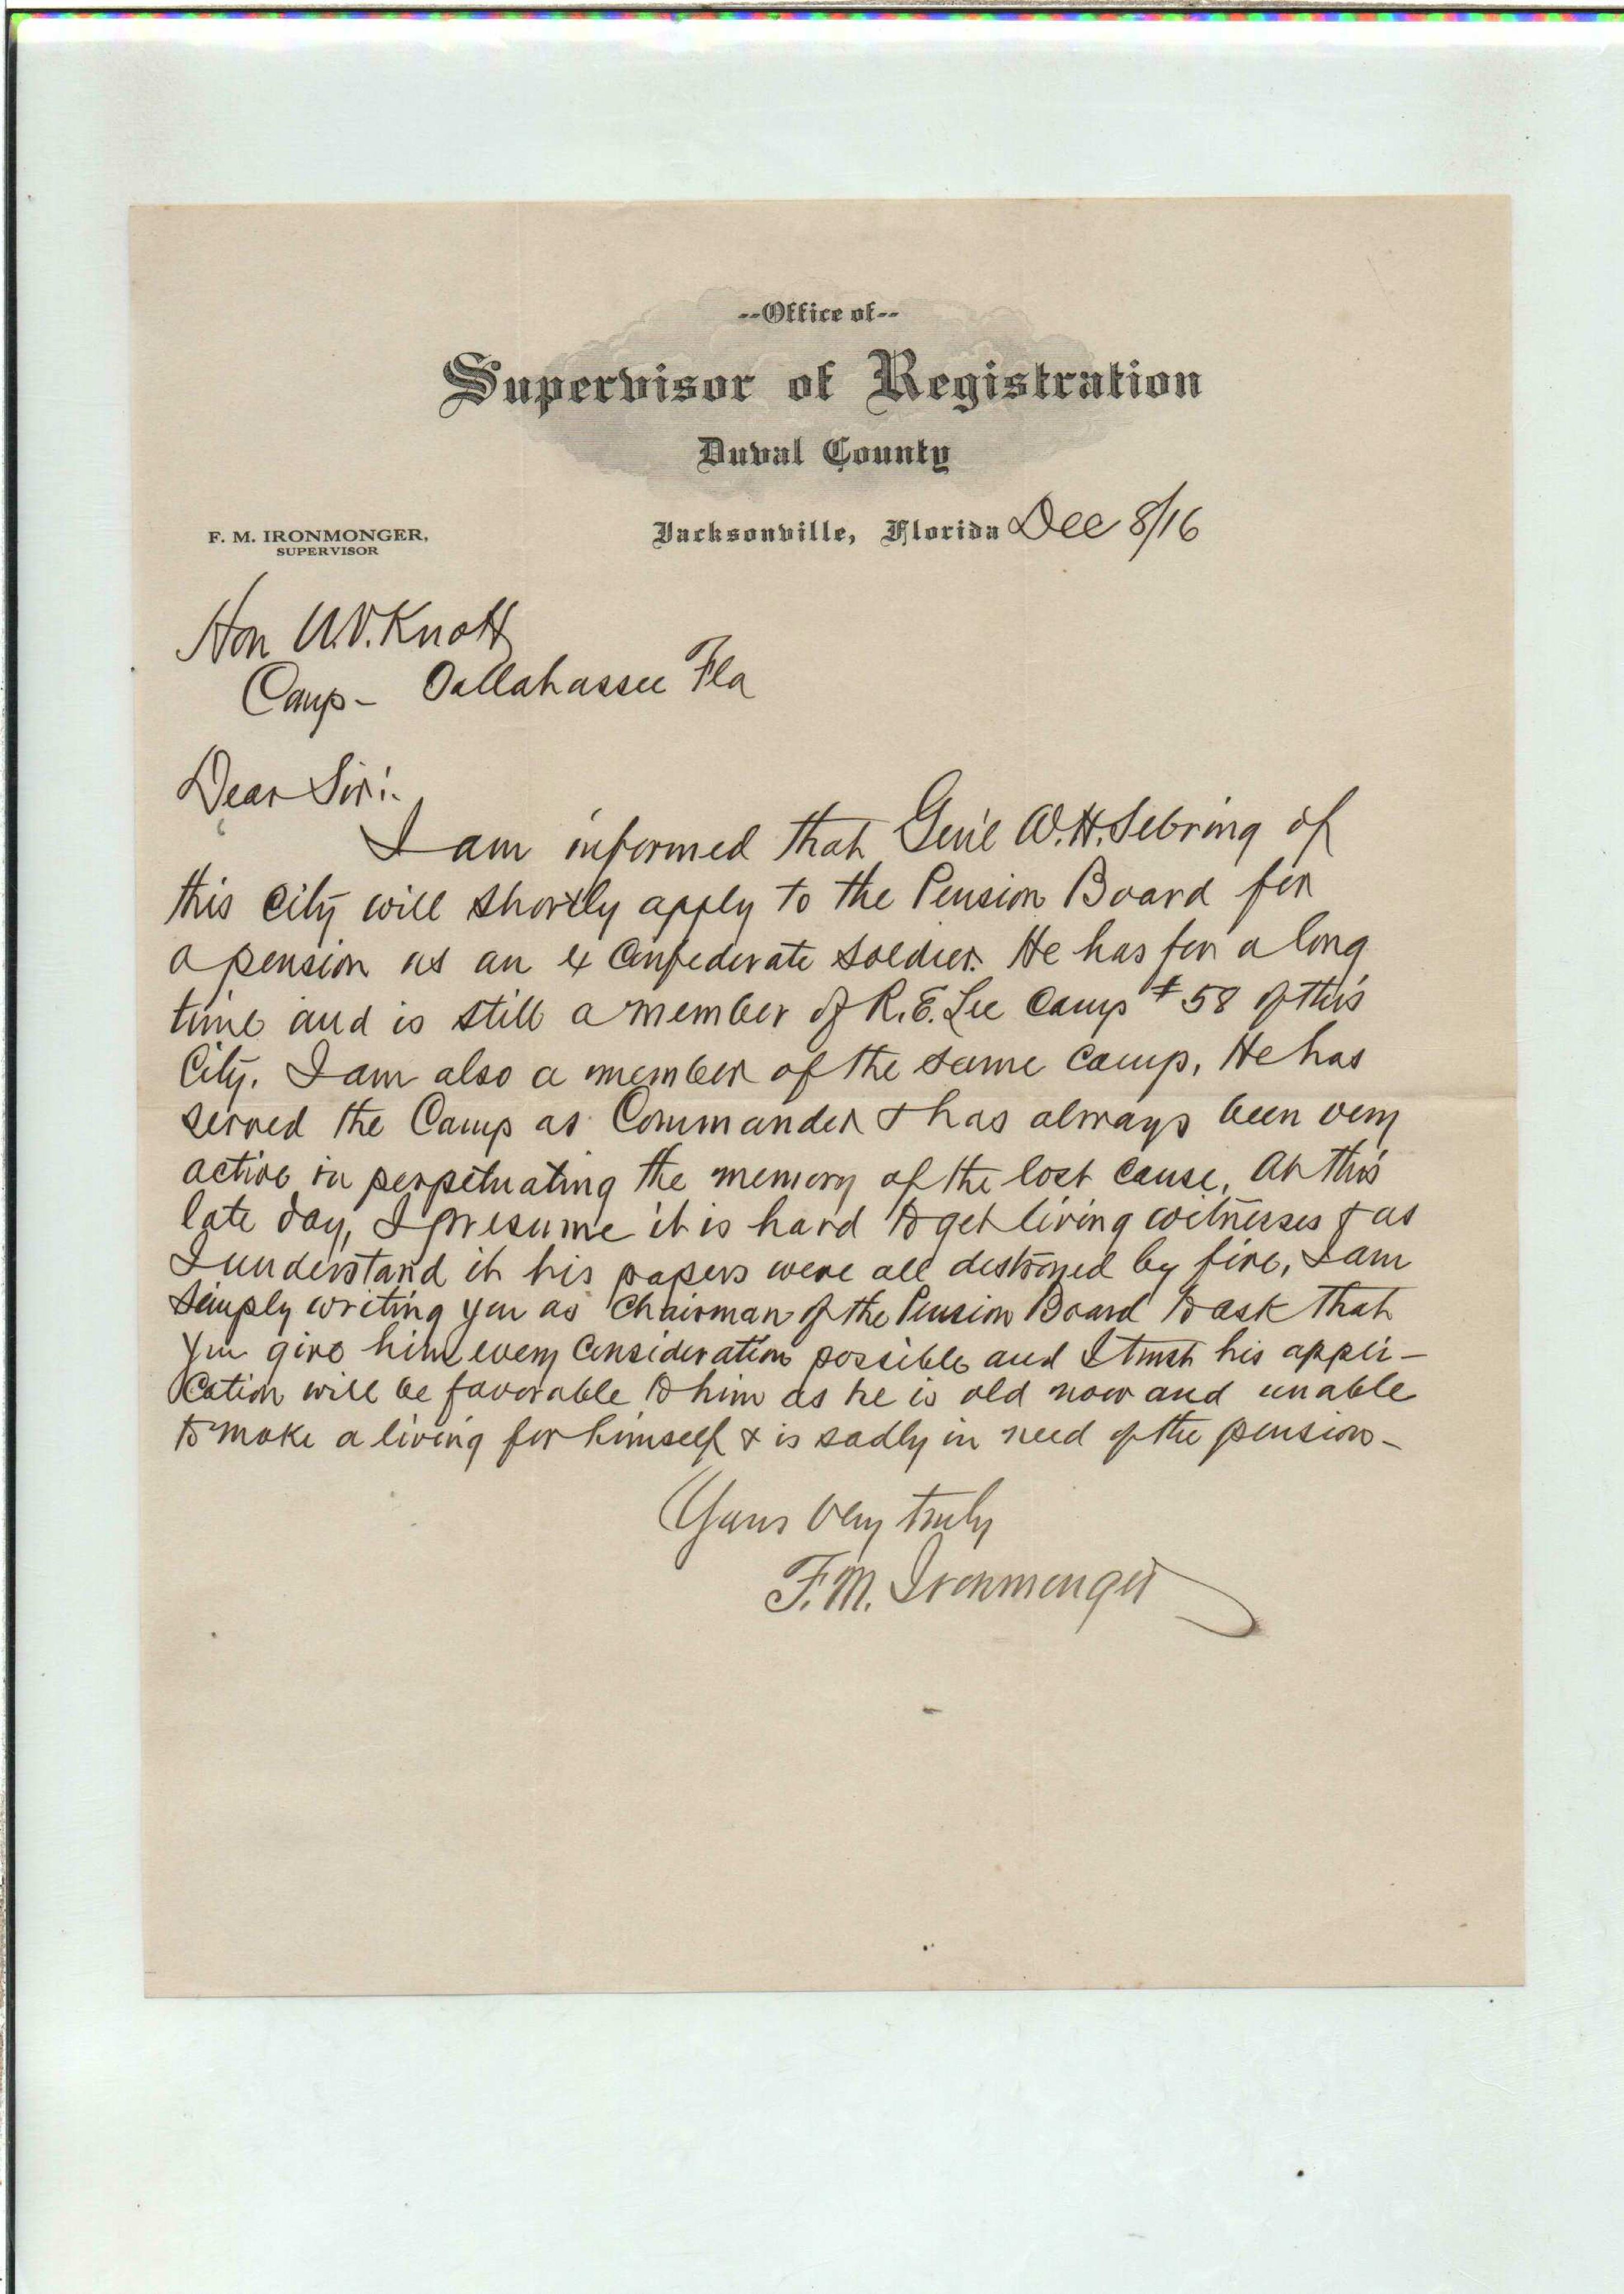 --Office of--
Supervisor of Registration
Duval County
F. M. IRONMONGER,
SUPERVISOR
Jacksonville, Florida Dec 8/16
Hon W.V. Knott
Comp - Tallahassee Fla
Dear Sir:-
I am informed that Gen'l W.H. Sebring of
this City will shortly apply to the Pension Board for
a pension as an ex Confederate Soldier. He has for a long
time and is still a member of R.E. Lee Camp #58 of this
City. I am also a member of the same Camp. He has
served the Camp as Commander & has always been very
active in perpetuating the memory of the lost cause. At this
late day, I presume it is hard to get living witnesses & as
I understand it his papers were all destroyed by fire, I am
simply writing you as Chairman of the Pension Board to ask that
you give him every Consideration possible and I trust his appli-
cation will be favorable to him as he is old now and unable
to make a living for himself & is sadly in need of the pension -
Yours Very truly
F.M. Ironmonger